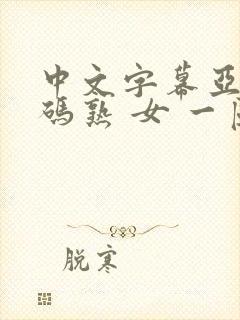 中文字幕亞
碼熟女一
脱寒